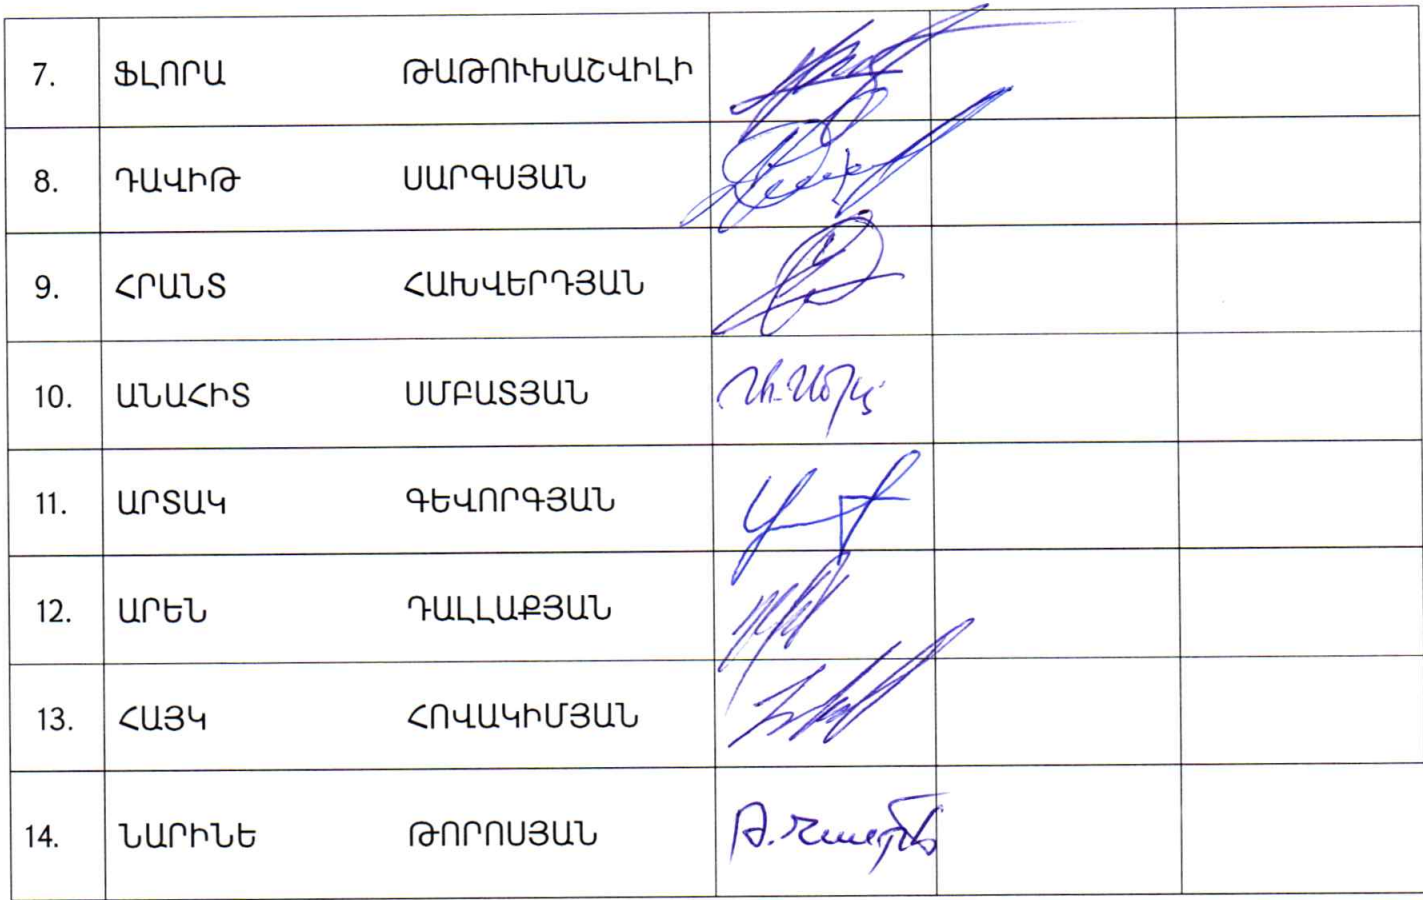 7. ՖԼՈՐԱ ԹԱԹՈՒԽԱՇՎԻԼԻ
8. ԴԱՎԻԹ ՍԱՐԳՍՅԱՆ
9. ՀՐԱՆՏ ՀԱԽՎԵՐԴՅԱՆ
10. ԱՆԱՀԻՏ ՍՄԲԱՏՅԱՆ
11. ԱՐՏԱԿ ԳԵՎՈՐԳՅԱՆ
12. ԱՐԵՆ ԴԱԼԼԱՔՅԱՆ
13. ՀԱՅԿ ՀՈՎԱԿԻՄՅԱՆ
14. ՆԱՐԻՆԵ ԹՈՐՈՍՅԱՆ